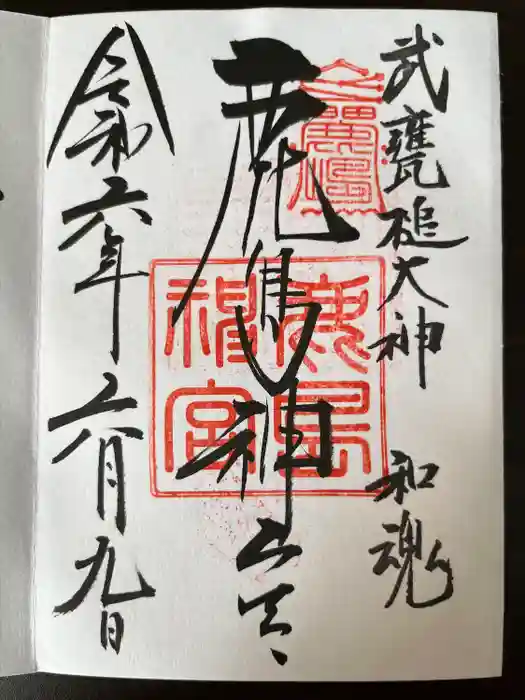 武甕槌大神 和魂
鹿島神宮
令和六年六月九日
鹿島
神宮